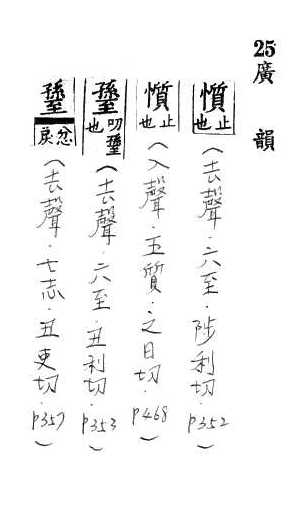 25 廣韻
懫 止也 (去聲·六至·陟利切·P352)
懫 止也 (入聲·五質·之日切·P468)
叨 也 (去聲·六至·丑利切·P353)
忿戾 (去聲·七志·丑吏切·P357)